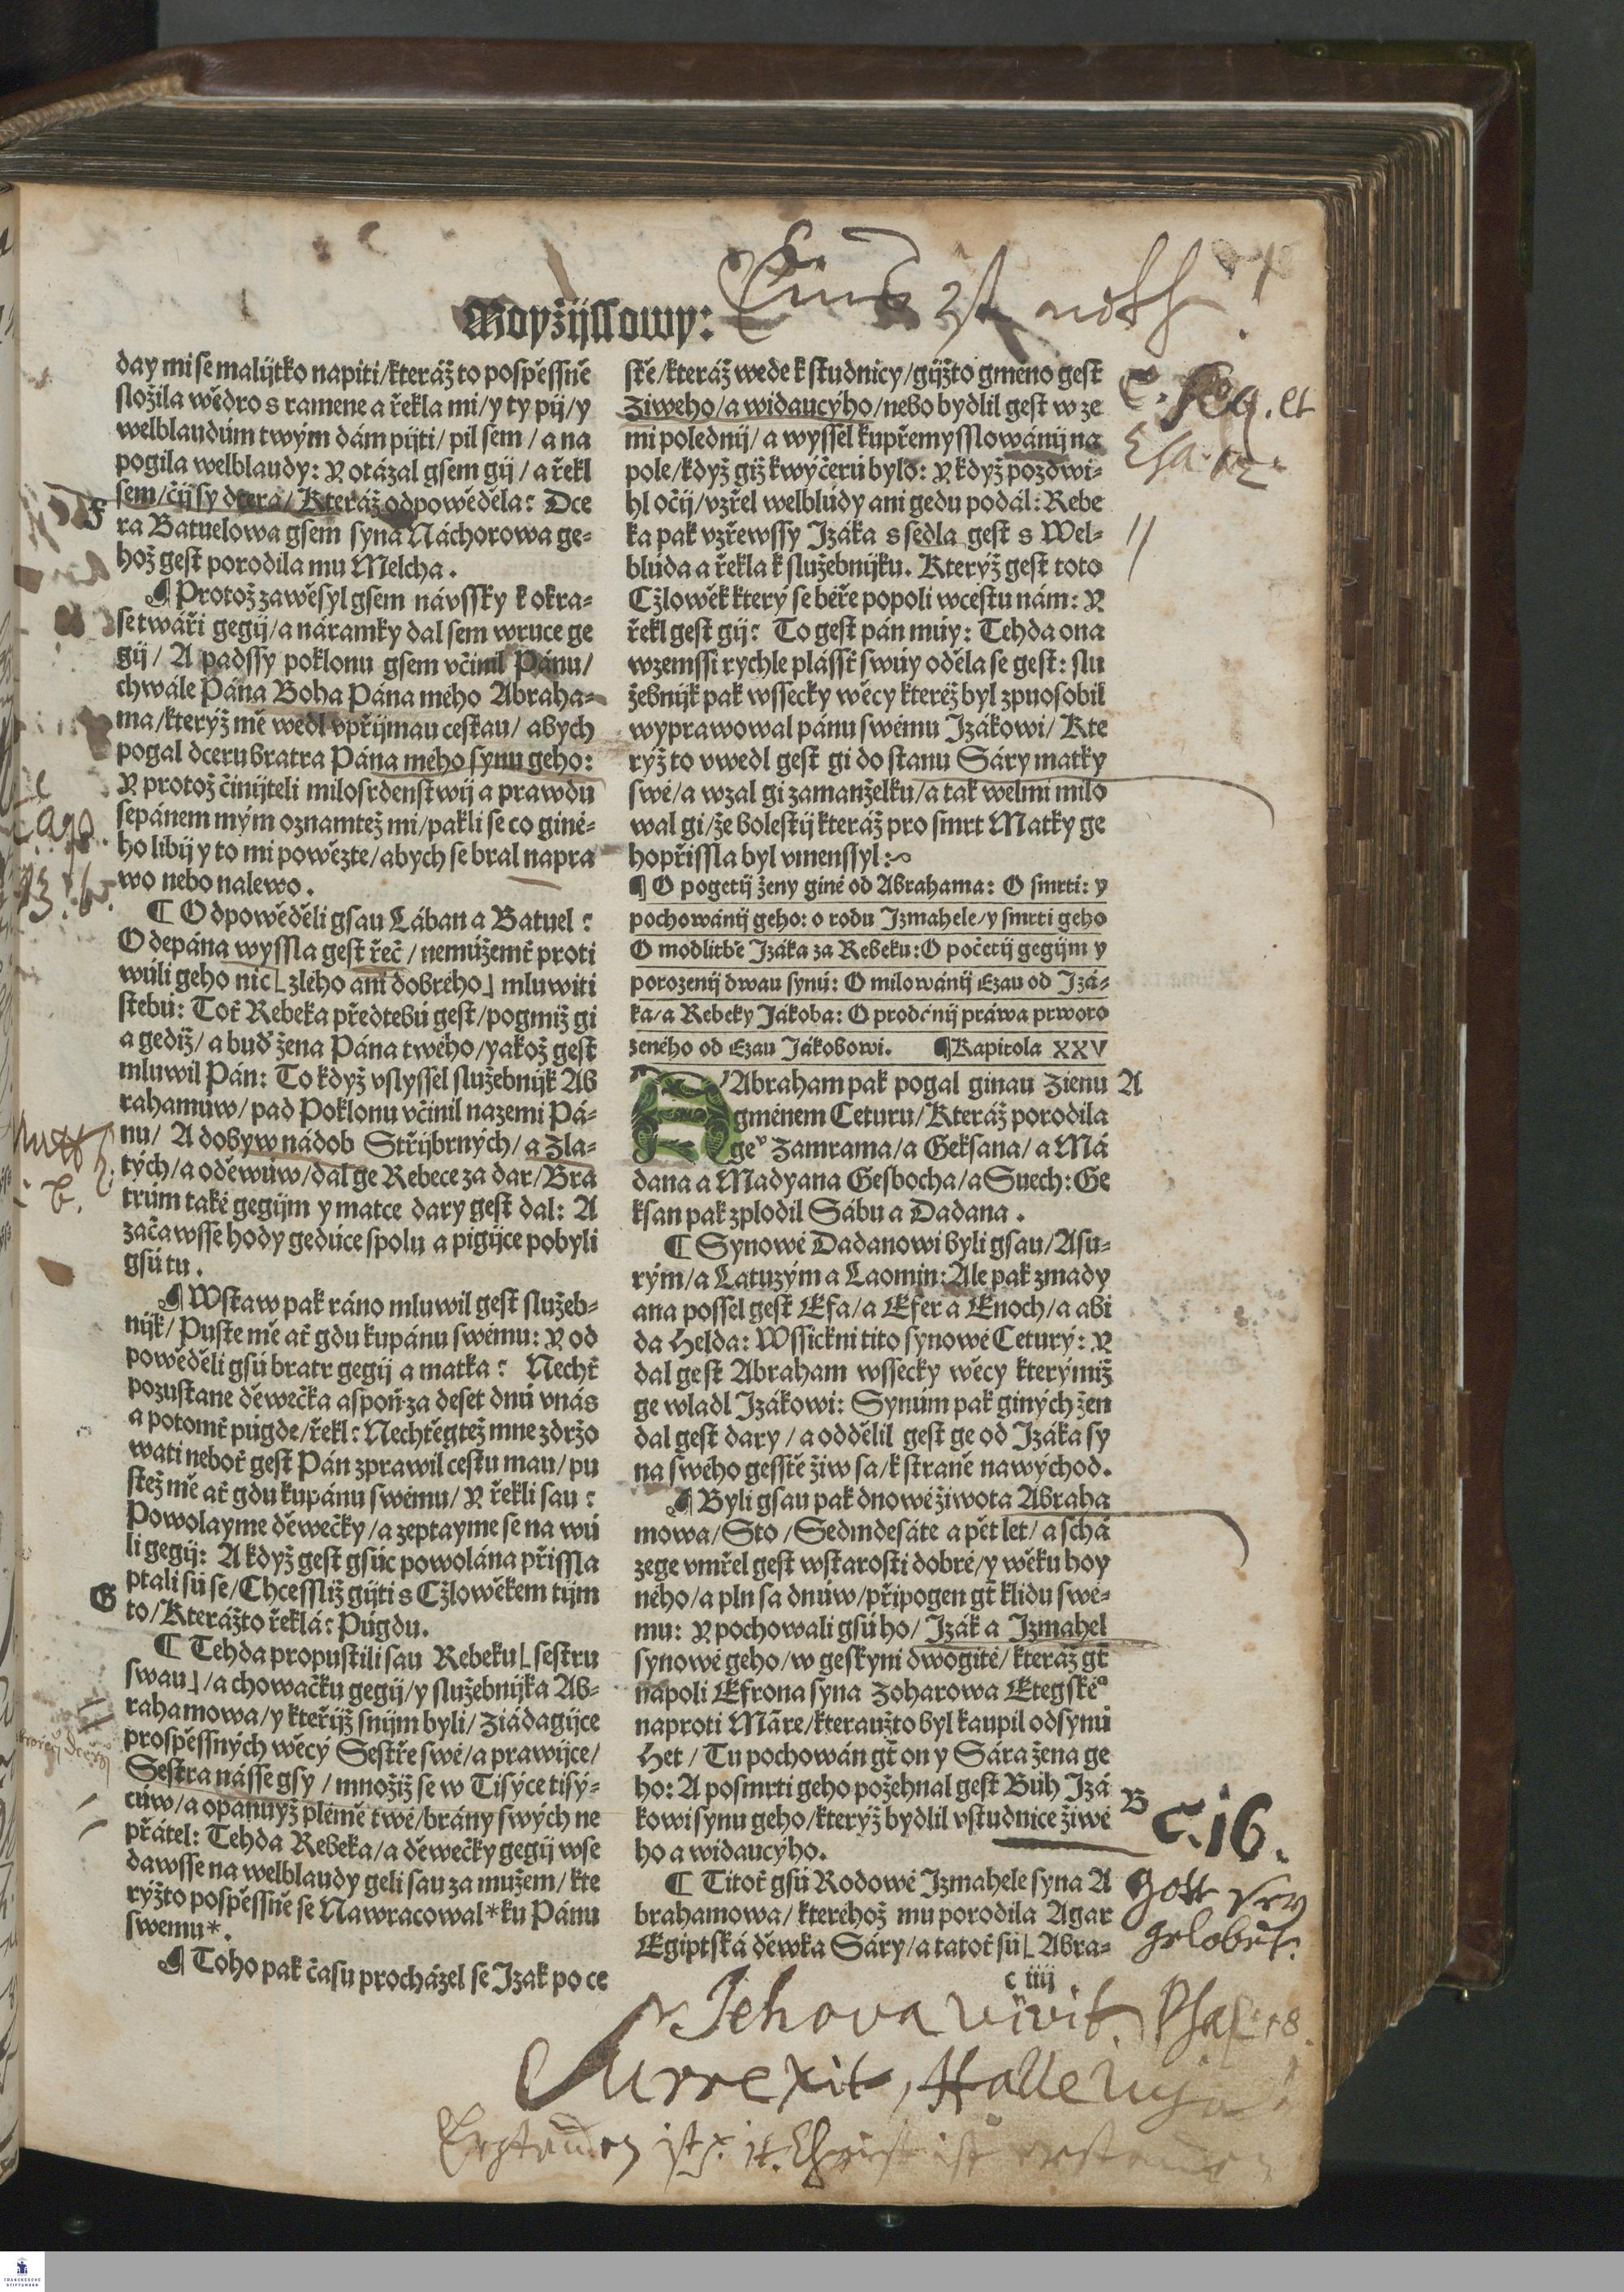 Moyžijssowy:
Einß ist noth
day mi se malijtko napiti/kteráž to pospěssně
složila wědro s ramene a řekla mi/y ty pij/y
welblaudúm twým dám pijti/pil sem/a na
pogila welblaudy: Y otázal gsem gij/a řekl
sem/čij sy dcera/Kteráž odpowěděla: Dce
F
ra Batuelowa gsem syna Náchorowa ge-
hož gest porodila mu Melcha.
¶ Protož zawěsyl gsem návssky k okra-
se twáři gegij/a náramky dal sem wruce ge
gij/ A padssy poklonu gsem včinil Pánu/
chwále Pána Boha Pána mého Abraha-
ma/kterýž mě wedl vpřijmau cestau/ abych
pogal dceru bratra Pána mého synu geho:
Y protož činijteli milosrdenstwij a prawdu
sepánem mým oznamtež mi/pakli se co giné-
ho libij y to mi powězte/abych se bral napra
wo nebo nalewo.
¶ Odpowěděli gsau Lában a Batuel:
Odepána wyssla gest řeč/nemúžemť proti
wúli geho nic [zlého ani dobrého] mluwiti
stebú: Toť Rebeka předtebú gest/pogmiž gi
a gediž/a buď žena Pána twého/yakož gest
mluwil Pán: To když vslyssěl služebnijk Ab
rahamúw/pad Poklonu včinil nazemi Pá-
nu/ A dobyw nádob Střijbrných/a Zla-
tých/a oděwúw/dal ge Rebece za dar/Bra
trúm také gegijm y matce dary gest dal: A
začawsse hody gedúce spolu a pigijce pobyli
gsú tu.
¶ Wstaw pak ráno mluwil gest služeb-
nijk/Pusťe mě ať gdu kupánu swému: Y od
powěděli gsú bratr gegij a matka: Nechť
pozustane děwečka aspoň za deset dnú vnás
a potomť púgde/řekl: Nechtěgtež mne zdržo
wati neboť gest Pán zprawil cestu mau/pu
stež mě ať gdu kupánu swému/Y řekli sau:
Powolayme děwečky/a zeptayme se na wú
li gegij: A když gest gsúc powolána přissla
ptali sú se/Chcessliž gijti s Člowěkem tijm
G
to/Kterážto řeklá: Púgdu.
¶ Tehda propustili sau Rebeku [sestru
swau]/a chowačku gegij/y služebnijka Ab-
rahamowa/y kteřijž snijm byli/Žiádagijce
prospěssných wěcý Sestře swé/a prawijce/
Sestra násse gsy/množiž se w Tisýce tisý-
cúw/a opanuyž plémě twé/brány swých ne
přátel: Tehda Rebeka/a děwečky gegij wse
dawsse na welblaudy geli sau za mužem/kte
rýžto pospěssně se Nawracowal*ku Pánu
swemu*.
¶ Toho pak času procházel se Izak po ce
stě/kteráž wede k studnicy/gijžto gmeno gest
Ziweho/a widaucýho/nebo bydlil gest w ze
mi polednij/a wyssel kupřemysslowánij na
pole/když giž kwyčerú bylo: Y když pozdwi-
hl očij/vzřel welblúdy ani gedu podál: Rebe
ka pak vzřewssy Izáka s sedla gest s Wel-
blúda a řekla k služebnijku. Kterýž gest toto
Cžlowěk který se béře popoli wcestu nám: Y
řekl gest gij: To gest pán múy: Tehda ona
wzemssi rychle plássť swúy oděla se gest: slu
žebnijk pak wssecky wěcy kteréž byl zpuosobil
wyprawowal pánu swému Izákowi/Kte
rýž to vwedl gest gi do stanu Sáry matky
swé/a wzal gi zamanželku/a tak welmi milo
wal gi/že bolestij kteráž pro smrt Matky ge
hopřissla byl vmenssyl:
¶ O pogetij ženy giné od Abrahama: O smrti: y
pochowánij geho: o rodu Izmahele/y smrti geho
O modlitbě Izáka za Rebeku: O početij gegijm y
porozenij dwau synú: O milowánij Ezau od Izá-
ka/a Rebeky Jákoba: O prodánij práwa prworo
zeného od Ezau Jákobowi. ¶Kapitola XXV
Abraham pak pogal ginau Zienu A
gménem Ceturu/Kteráž porodila
ge° Zamrama/a Geksana/a Má
dana a Madyana Gesbocha/a Suech: Ge
ksan pak zplodil Sábu a Dadana.
¶ Synowé Dadanowi byli gsau/Asu-
rým/a Latuzým a Laomin: Ale pak zmady
ana possel gest Efa/a Efer a Enoch/a abi
da Helda: Wssickni tito synowé Cetury: Y
dal gest Abraham wssecky wěcy kterýmiž
ge wladl Izákowi: Synúm pak giných žen
dal gest dary/a oddělil gest ge od Izáka sy
na swého gesstě žiw sa/k straně nawýchod.
¶ Byli gsau pak dnowé žiwota Abraha
mowa/Sto/Sedmdesáte a pět let/a schá
zege vmřel gest wstarosti dobré/y wěku hoy
ného/a pln sa dnúw/připogen gť klidu swé-
mu: Y pochowali gsú ho/Izák a Izmahel
synowé geho/w geskyni dwogité/kteráž gť
napoli Efrona syna Zoharowa Etegské°
naproti Mãre/kteraužto byl kaupil odsynú
Het/Tu pochowán gť on y Sára žena ge
ho: A posmrti geho požehnal gest Búh Izá
B
kowi synu geho/kterýž bydlil vstudnice žiwé
ho a widaucýho.
¶ Titoť gsú Rodowé Izmahele syna A
brahamowa/kteréhož mu porodila Agar
Egiptská děwka Sáry/a tatoť sú [Abra-
c iiij
c. seq. et
Esa.
c. 16.
Gott sey
gelobet.
Jehova vivit. Psal. 18.
Surrexit, Halleluja!
Erstanden ist Christ ist erstanden
FRANCKESCHE
STIFTUNGEN